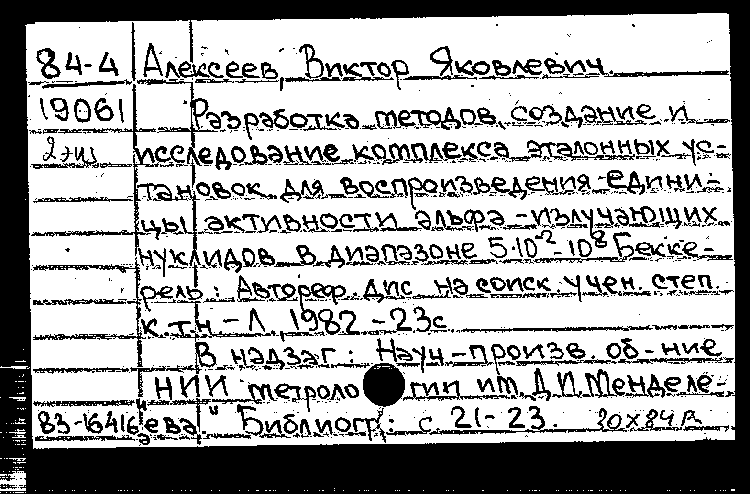 84-4 Алексеев, Виктор Яковлевич
19061 Разработка методов, создание и
2 экз исследование комплекса эталонных ус-
тановок для воспроизведения едини-
цы активности альфа-излучающих
нуклидов в диапазоне 5·10⁻²-10⁸ Бекке-
рель: Автореф. дис. на соиск. учен. степ.
к.т.н - Л., 1982 - 23с
В надзаг: Науч-произв. об-ние
"НИИ метрологии им. Д.И. Менделе-
83-16416 ева". Библиогр: с. 21-23.